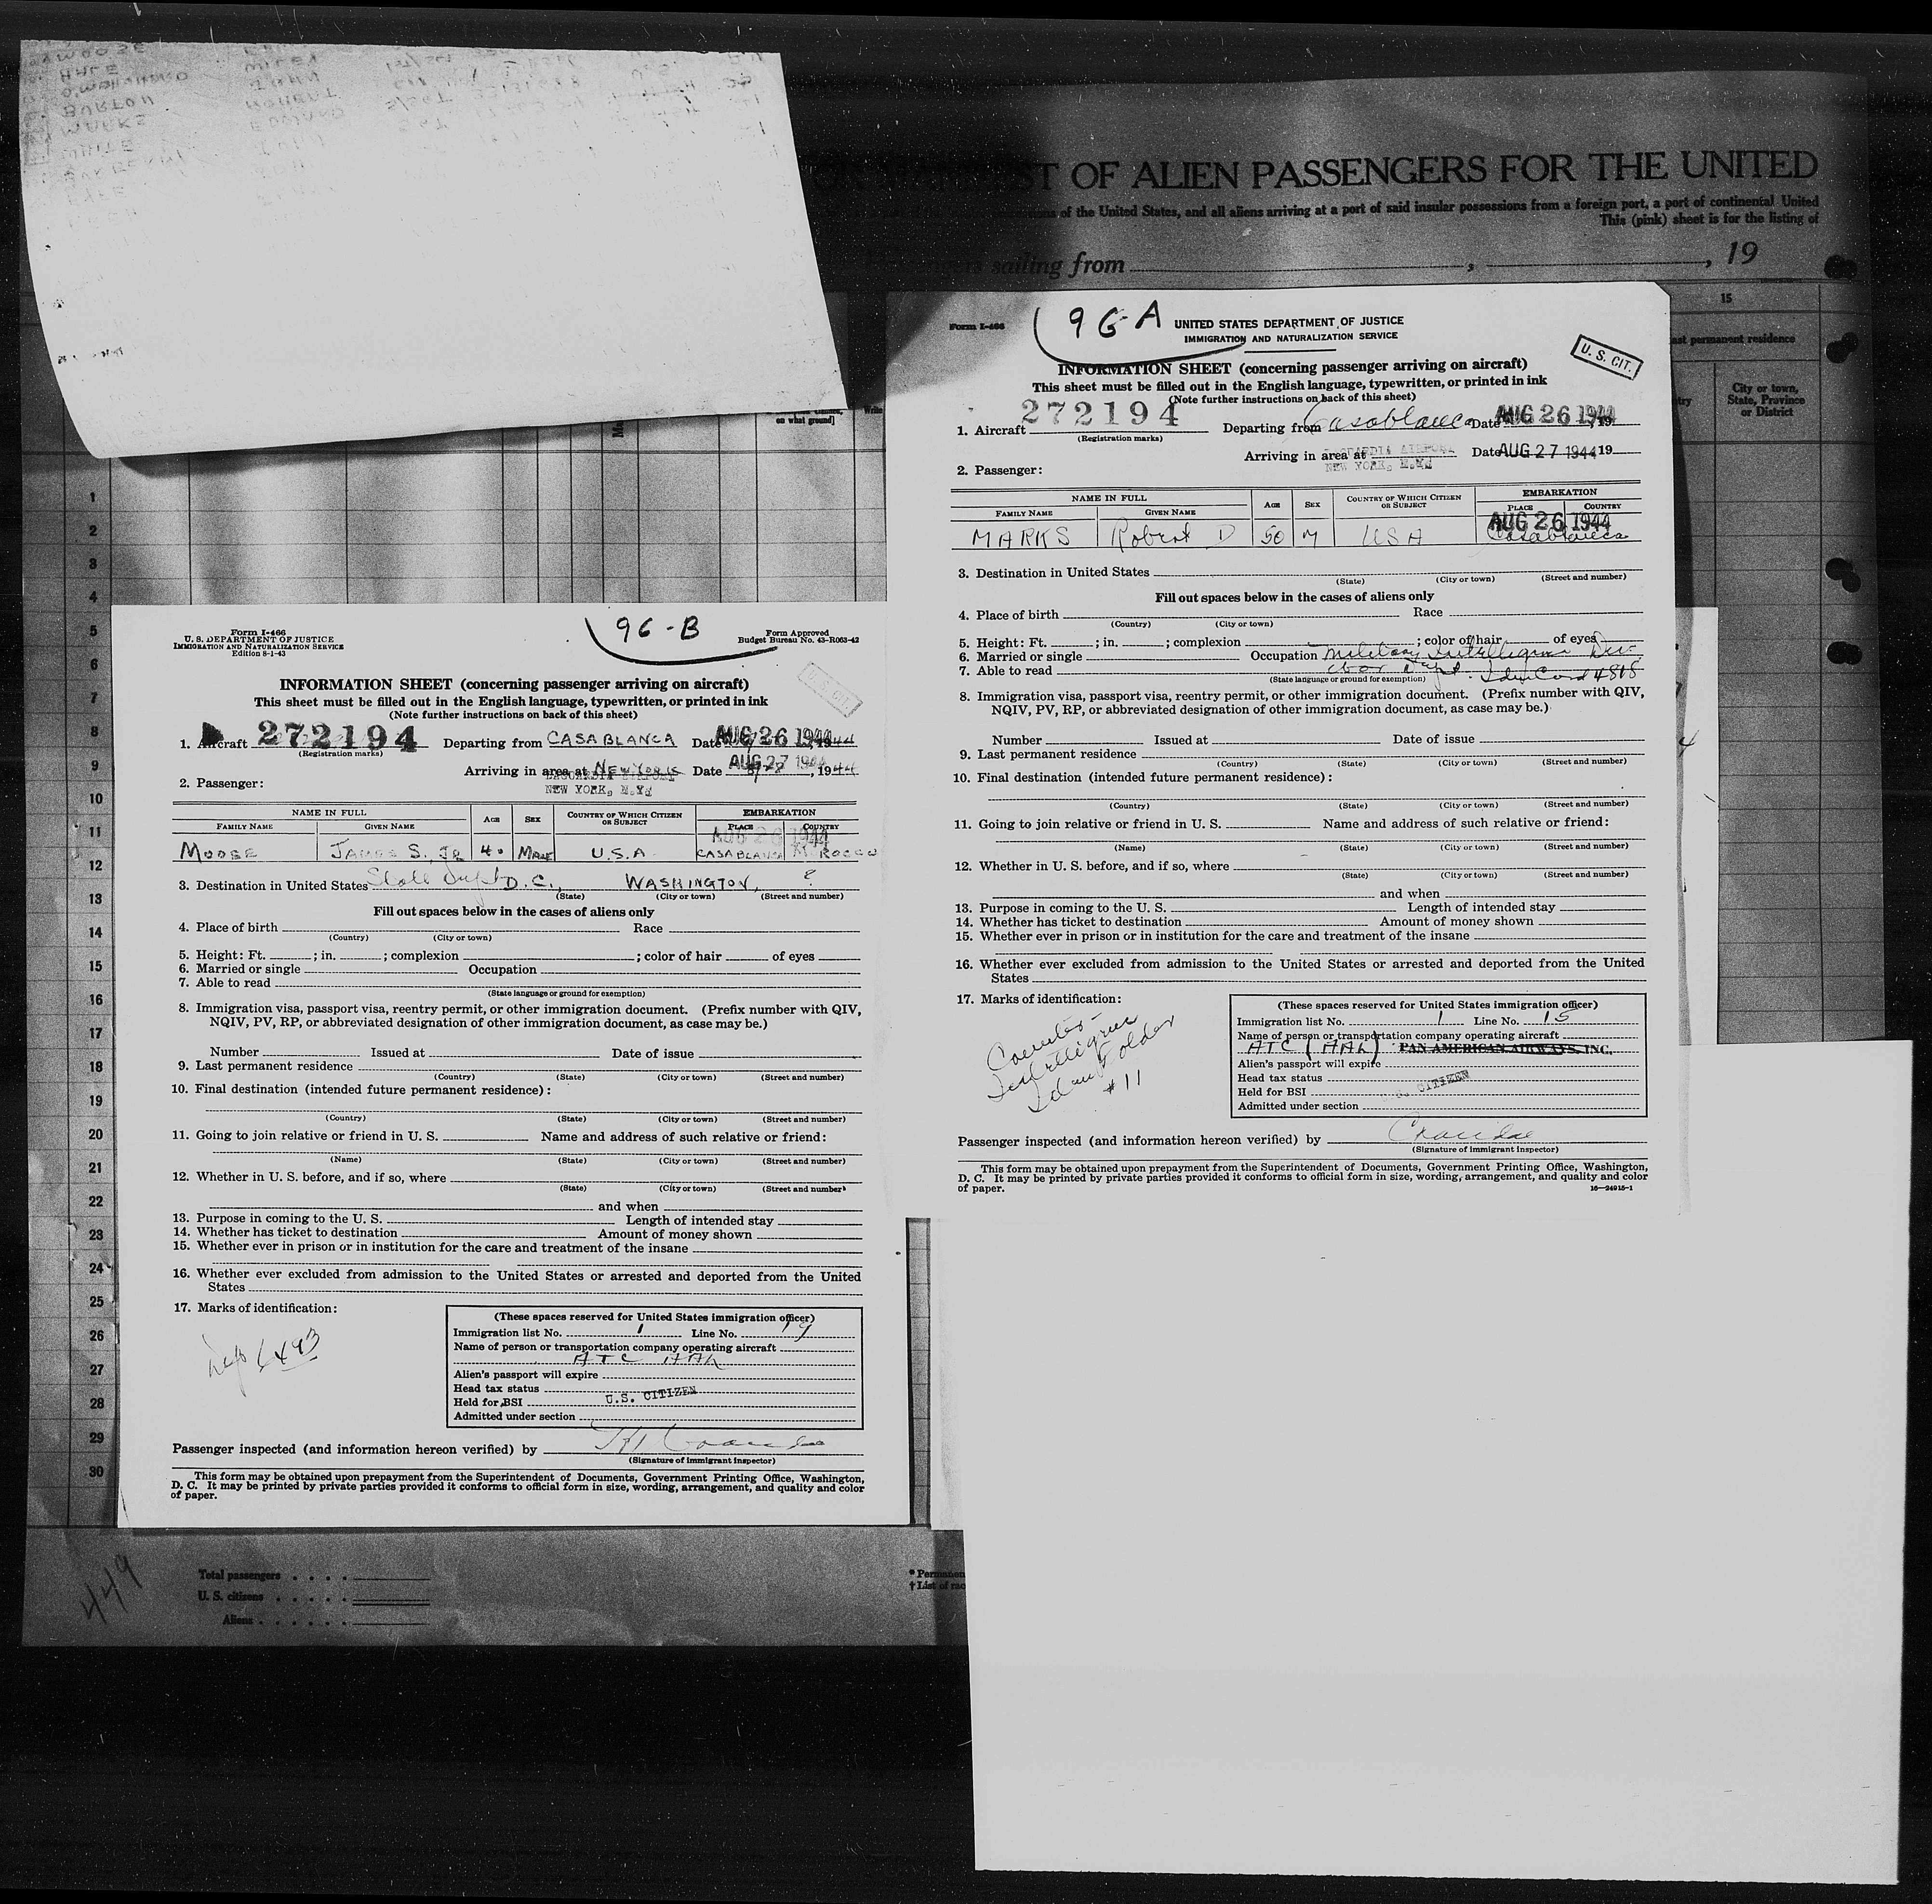 ST OF ALIEN PASSENGERS FOR THE UNITED
of the United States, and all aliens arriving at a port of said insular possessions from a foreign port, a port of continental United
This (pink) sheet is for the listing of
sailing from , , 19
15
permanent residence
City or town,
State, Province
or District
on what ground]
1
2
3
4
5
6
7
8
9
10
11
12
13
14
15
16
17
18
19
20
21
22
23
24
25
26
27
28
29
30
449
Total passengers
U. S. citizens
Aliens
Form I-466
U. S. DEPARTMENT OF JUSTICE
IMMIGRATION AND NATURALIZATION SERVICE
Edition 8-1-43
96-B
Form Approved
Budget Bureau No. 43-R063-42
INFORMATION SHEET (concerning passenger arriving on aircraft)
This sheet must be filled out in the English language, typewritten, or printed in ink
(Note further instructions on back of this sheet)
1. Aircraft 272194 Departing from CASABLANCA Date AUG 26 1944
(Registration marks)
Arriving in area at NEW YORK Date AUG 27 1944, 1944
NEW YORK, N.Y.
2. Passenger:
NAME IN FULL AGE SEX COUNTRY OF WHICH CITIZEN OR SUBJECT EMBARKATION
FAMILY NAME GIVEN NAME PLACE COUNTRY
AUG 26 1944
MOOSE JAMES S., JR 40 MALE U.S.A. CASABLANCA MOROCCO
3. Destination in United States State Dept D.C., WASHINGTON, ?
(State) (City or town) (Street and number)
Fill out spaces below in the cases of aliens only
4. Place of birth Race
(Country) (City or town)
5. Height: Ft. ; in. ; complexion ; color of hair of eyes
6. Married or single Occupation
7. Able to read
(State language or ground for exemption)
8. Immigration visa, passport visa, reentry permit, or other immigration document. (Prefix number with QIV,
NQIV, PV, RP, or abbreviated designation of other immigration document, as case may be.)
Number Issued at Date of issue
9. Last permanent residence
(Country) (State) (City or town) (Street and number)
10. Final destination (intended future permanent residence):
(Country) (State) (City or town) (Street and number)
11. Going to join relative or friend in U. S. Name and address of such relative or friend:
(Name) (State) (City or town) (Street and number)
12. Whether in U. S. before, and if so, where
(State) (City or town) (Street and number)
and when
13. Purpose in coming to the U. S. Length of intended stay
14. Whether has ticket to destination Amount of money shown
15. Whether ever in prison or in institution for the care and treatment of the insane
16. Whether ever excluded from admission to the United States or arrested and deported from the United
States
17. Marks of identification:
6493
(These spaces reserved for United States immigration officer)
Immigration list No. 1 Line No. 19
Name of person or transportation company operating aircraft
ATC AAL
Alien's passport will expire
Head tax status
Held for BSI U.S. CITIZEN
Admitted under section
Passenger inspected (and information hereon verified) by
(Signature of immigrant inspector)
This form may be obtained upon prepayment from the Superintendent of Documents, Government Printing Office, Washington,
D. C. It may be printed by private parties provided it conforms to official form in size, wording, arrangement, and quality and color
of paper.
Form I-466
96-A
UNITED STATES DEPARTMENT OF JUSTICE
IMMIGRATION AND NATURALIZATION SERVICE
U. S. CIT.
INFORMATION SHEET (concerning passenger arriving on aircraft)
This sheet must be filled out in the English language, typewritten, or printed in ink
(Note further instructions on back of this sheet)
1. Aircraft 272194 Departing from Casablanca Date AUG 26 1944 19
(Registration marks)
Arriving in area at Date AUG 27 1944 19
NEW YORK, N.Y.
2. Passenger:
NAME IN FULL AGE SEX COUNTRY OF WHICH CITIZEN OR SUBJECT EMBARKATION
FAMILY NAME GIVEN NAME PLACE COUNTRY
AUG 26 1944
MARKS Robert D 50 M USA Casablanca
3. Destination in United States
(State) (City or town) (Street and number)
Fill out spaces below in the cases of aliens only
4. Place of birth Race
(Country) (City or town)
5. Height: Ft. ; in. ; complexion ; color of hair of eyes
6. Married or single Occupation Military Intelligence Div.
7. Able to read War Dept. Iden Card 4818
(State language or ground for exemption)
8. Immigration visa, passport visa, reentry permit, or other immigration document. (Prefix number with QIV,
NQIV, PV, RP, or abbreviated designation of other immigration document, as case may be.)
Number Issued at Date of issue
9. Last permanent residence
(Country) (State) (City or town) (Street and number)
10. Final destination (intended future permanent residence):
(Country) (State) (City or town) (Street and number)
11. Going to join relative or friend in U. S. Name and address of such relative or friend:
(Name) (State) (City or town) (Street and number)
12. Whether in U. S. before, and if so, where
(State) (City or town) (Street and number)
and when
13. Purpose in coming to the U. S. Length of intended stay
14. Whether has ticket to destination Amount of money shown
15. Whether ever in prison or in institution for the care and treatment of the insane
16. Whether ever excluded from admission to the United States or arrested and deported from the United
States
17. Marks of identification:
Counter-
Intelligence
Folder
#11
(These spaces reserved for United States immigration officer)
Immigration list No. 1 Line No. 15
Name of person or transportation company operating aircraft
ATC (AAL) PAN AMERICAN AIRWAYS, INC.
Alien's passport will expire
Head tax status
Held for BSI CITIZEN
Admitted under section
Passenger inspected (and information hereon verified) by
(Signature of immigrant inspector)
This form may be obtained upon prepayment from the Superintendent of Documents, Government Printing Office, Washington,
D. C. It may be printed by private parties provided it conforms to official form in size, wording, arrangement, and quality and color
of paper.
16—24915-1